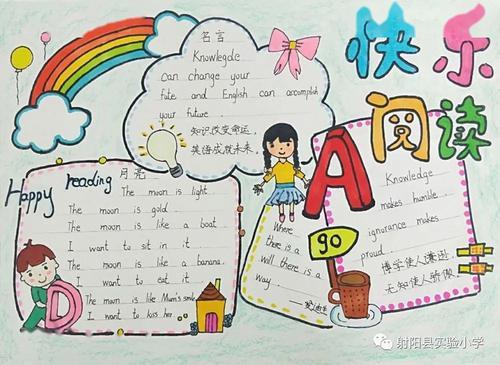 快乐
阅读
名言
Knowlegde
can change your
fate and English can accomplish
your future
知识改变命运,
英语成就未来.
Happy reading
月亮
The moon is light
The moon is gold
The moon is like a boat
I want to sit in it
The moon is like a banana
I want to eat it
The moon is like Mum's smile
I want to kiss her
D
A
go
Where
there is a
will there is a
way
Knowledge
makes humble
ignorance makes
proud
博学使人谦逊
无知使人骄傲
射阳县实验小学